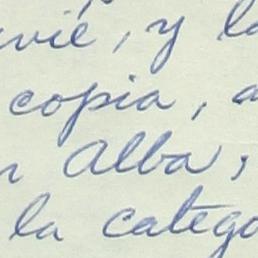 vié, y la
copia, a
n Alba,
la catego